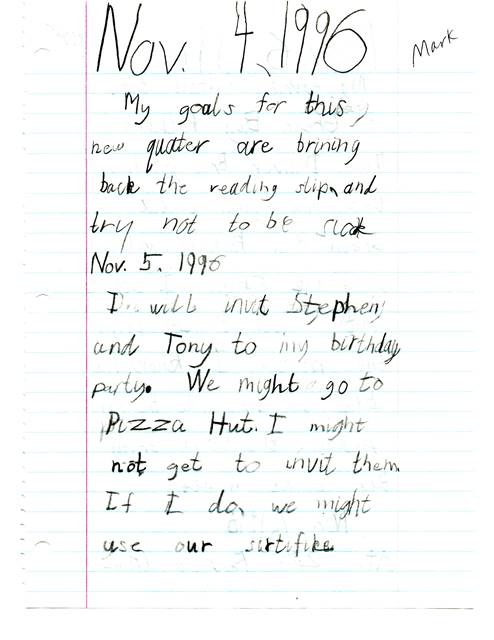 Nov. 4, 1996
Mark
My goals for this
new quatter are brining
back the reading slip, and
try not to be sick
Nov. 5. 1996
I will invit Stephen,
and Tony to my birthday
party. We might go to
Pizza Hut. I might
not get to invit them.
If I do, we might
use our surtifike